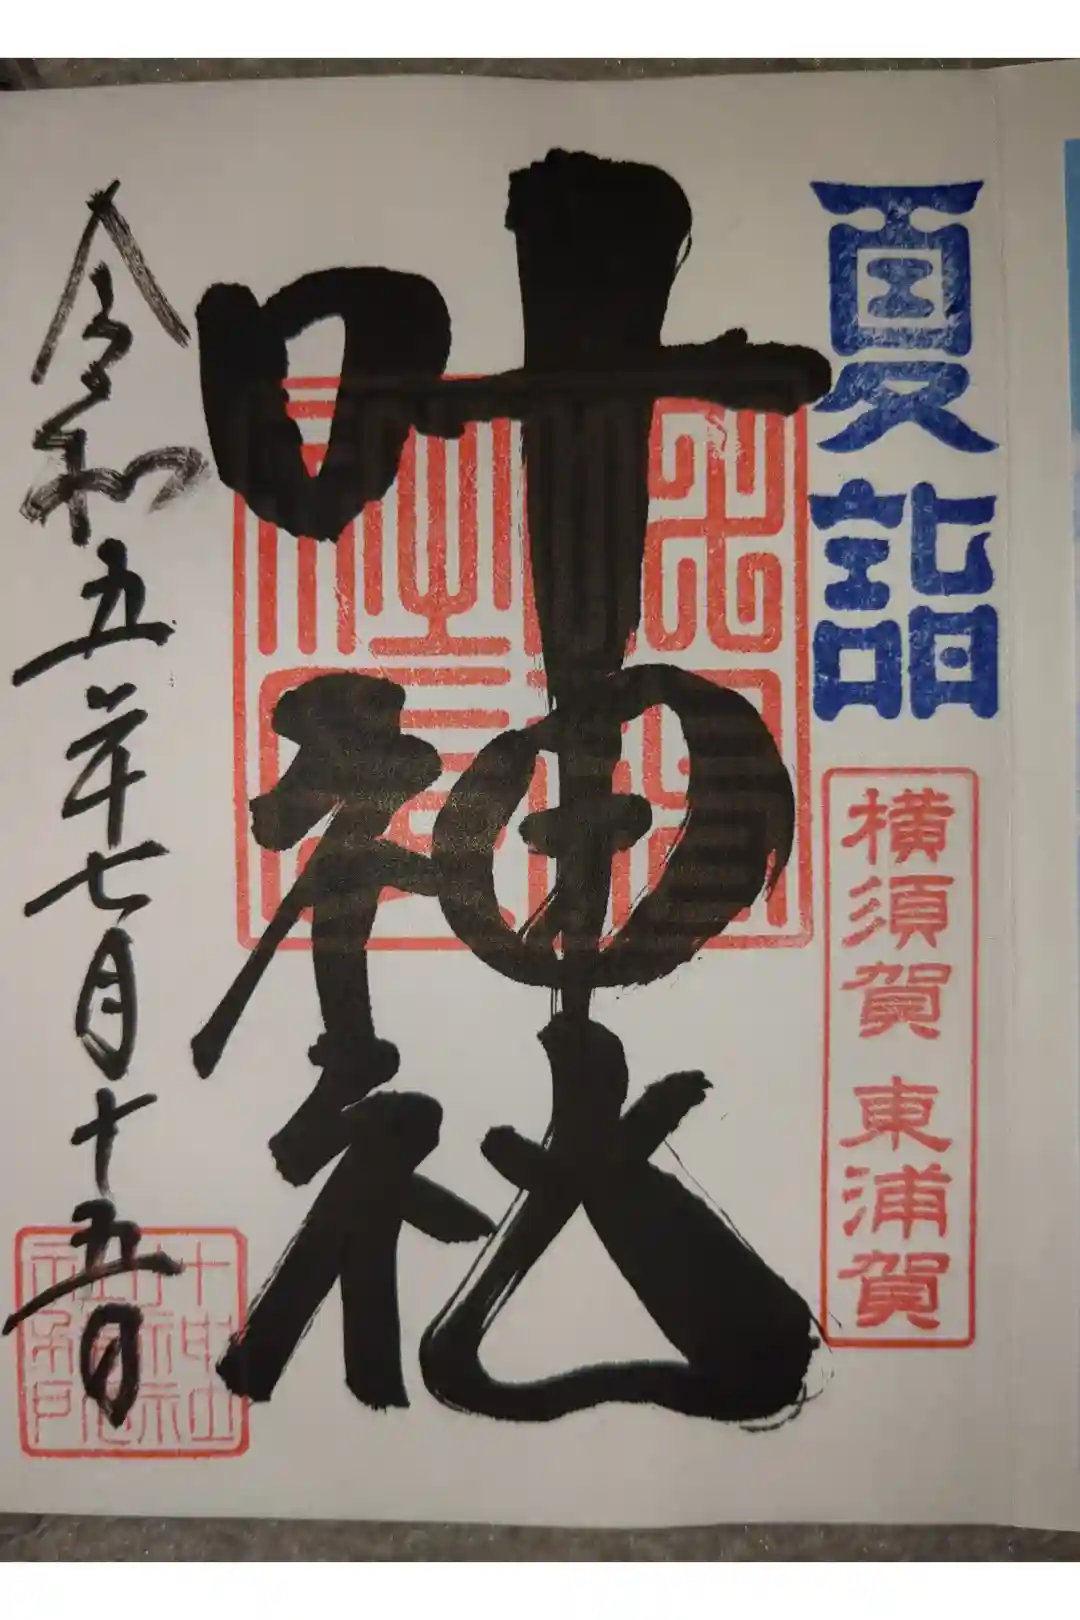 夏詣
横須賀 東浦賀
叶神社
令和五年七月十五日